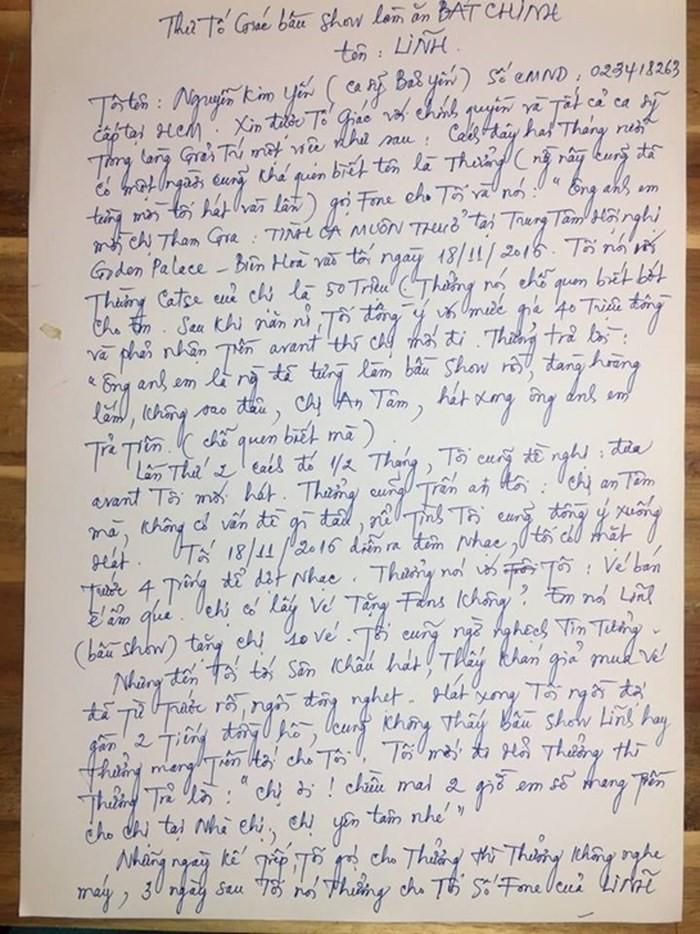 Thư Tố Giác bầu show làm ăn BẤT CHÍNH
tên : LINH.
Tôi tên : Nguyễn Kim Yến ( ca sỹ Bảo Yến ) Số CMND : 023418263
cấp tại HCM . Xin được Tố Giác với chính quyền và Tất cả ca sỹ
trong làng Giải Trí một việc như sau : Cách đây hai Tháng rưỡi
có một người cũng khá quen biết tên là Thưởng ( ng này cũng đã
từng mời tôi hát vài lần ) gọi Fone cho Tôi và nói : " Ông anh em
mời chị Tham Gia : TÌNH CA MUÔN THUỞ tại Trung Tâm Hội nghị
Golden Palace - Biên Hoà vào tối ngày 18/11/2016 . Tôi nói với
Thưởng Catse của chị là 50 Triệu ( Thưởng nói chỗ quen biết bớt
cho em . Sau khi năn nỉ, Tôi đồng ý với mức giá 40 Triệu đồng
và phải nhận Tiền avant thì chị mới đi . Thưởng trả lời :
" Ông anh em là ng đã từng làm bầu show rồi, đàng hoàng
lắm, không sao đâu, chị An Tâm, hát xong ông anh em
Trả Tiền. ( chỗ quen biết mà )
Lần Thứ 2 cách đó 1/2 Tháng, Tôi cũng đề nghị : đưa
avant Tôi mới hát . Thưởng cũng Trấn an tôi : chị an Tâm
mà, không có vấn đề gì đâu, nể Tình Tôi cũng đồng ý xuống
Hát . Tối 18/11/2016 diễn ra đêm Nhạc, tôi có mặt
trước 4 Tiếng để dợt Nhạc . Thưởng nói với Tôi : Vé bán
ế ẩm quá . Chị có lấy Vé Tặng Fans không ? Em nói Linh
(bầu show) tặng chị 10 vé . Tôi cũng ngờ nghệch Tin Tưởng .
Nhưng đến Tối tới Sân Khấu hát, Thấy khán giả mua vé
đã Từ Trước rồi, ngồi đông nghẹt . Hát xong Tôi ngồi đợi
gần 2 Tiếng đồng hồ, cũng không Thấy bầu show Linh hay
Thưởng mang Tiền tới cho Tôi . Tôi mới đi Hỏi Thưởng thì
Thưởng Trả lời : " chị ơi ! chiều mai 2 giờ em sẽ mang Tiền
cho chị tại Nhà chị, chị yên tâm nhé "
Những ngày kế Tiếp, Tôi gọi cho Thưởng thì Thưởng không nghe
máy, 3 ngày sau Tôi nói Thưởng cho Tôi Số Fone của LINH